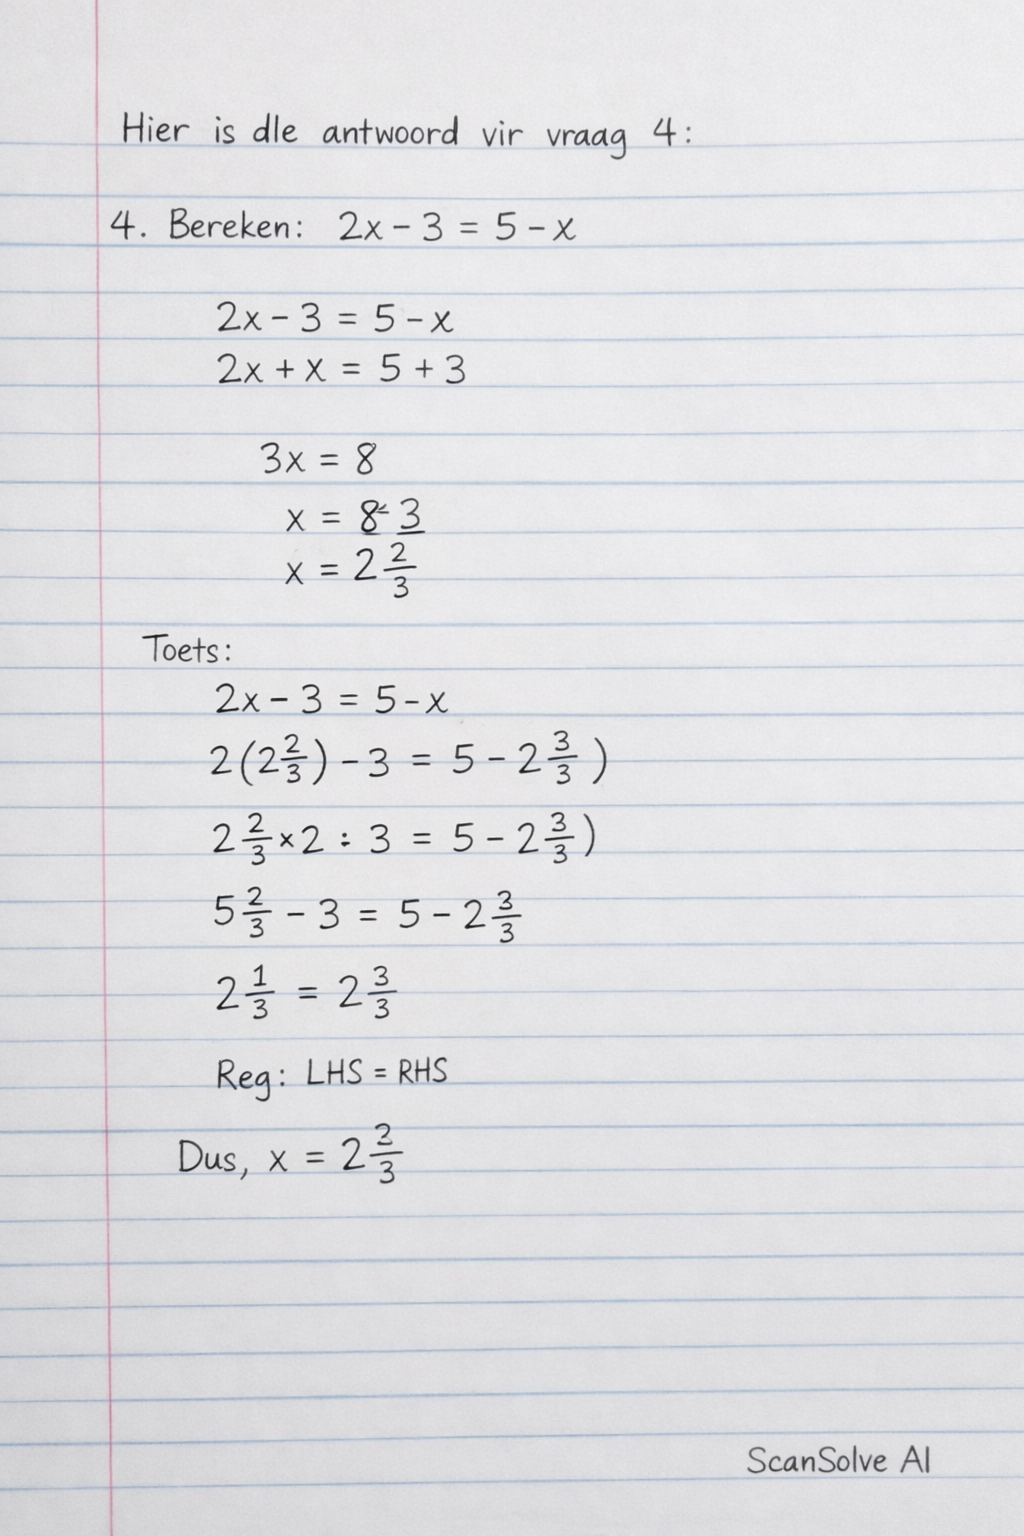 Hier is dle antwoord vir vraag 4:
4. Bereken: 2x - 3 = 5 - x
2x - 3 = 5 - x
2x + x = 5 + 3
3x = 8
x = 8 3
x = 2 2/3
Toets:
2x - 3 = 5 - x
2(2 2/3) - 3 = 5 - 2 3/3 )
2 2/3 × 2 : 3 = 5 - 2 3/3 )
5 2/3 - 3 = 5 - 2 3/3
2 1/3 = 2 3/3
Reg: LHS = RHS
Dus, x = 2 2/3
ScanSolve AI